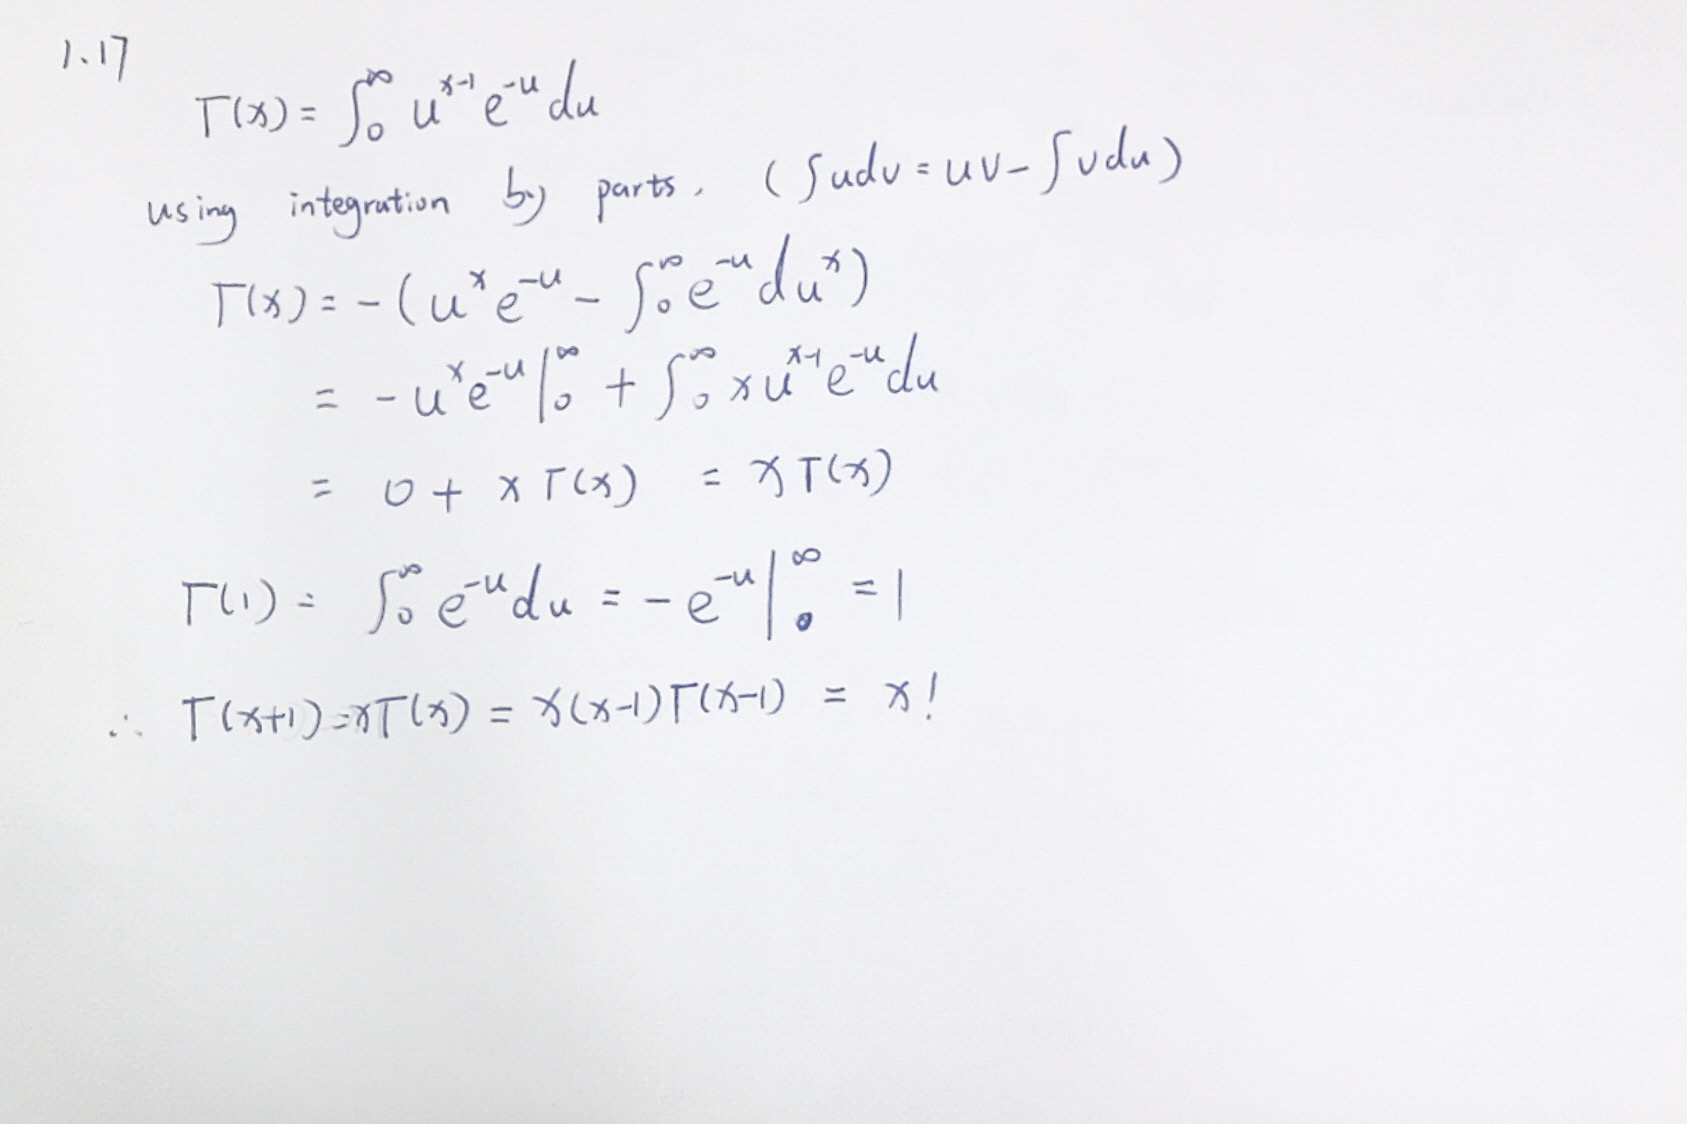 1.17
Γ(x) = ∫₀^∞ u^{x-1} e^{-u} du
using integration by parts. (∫udv = uv - ∫vdu)
Γ(x) = -(u^x e^{-u} - ∫₀^∞ e^{-u} du^x)
= -u^x e^{-u}|₀^∞ + ∫₀^∞ x u^{x-1} e^{-u} du
= 0 + x Γ(x) = x Γ(x)
Γ(1) = ∫₀^∞ e^{-u} du = -e^{-u}|₀^∞ = 1
∴ Γ(x+1) = xΓ(x) = x(x-1)Γ(x-1) = x!